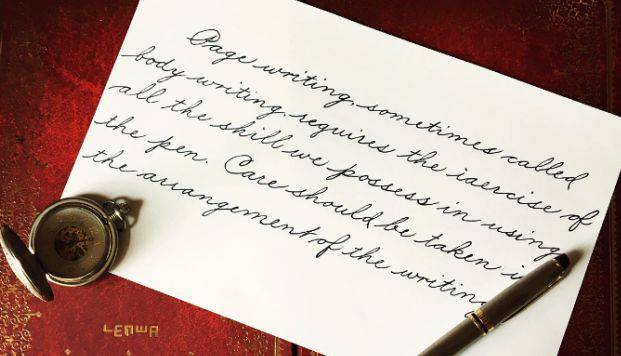 Page writing sometimes called
body writing requires the iaercise of
all the skill we possess in using
the pen. Care should be taken i
the arrangement of the writing
LENWA